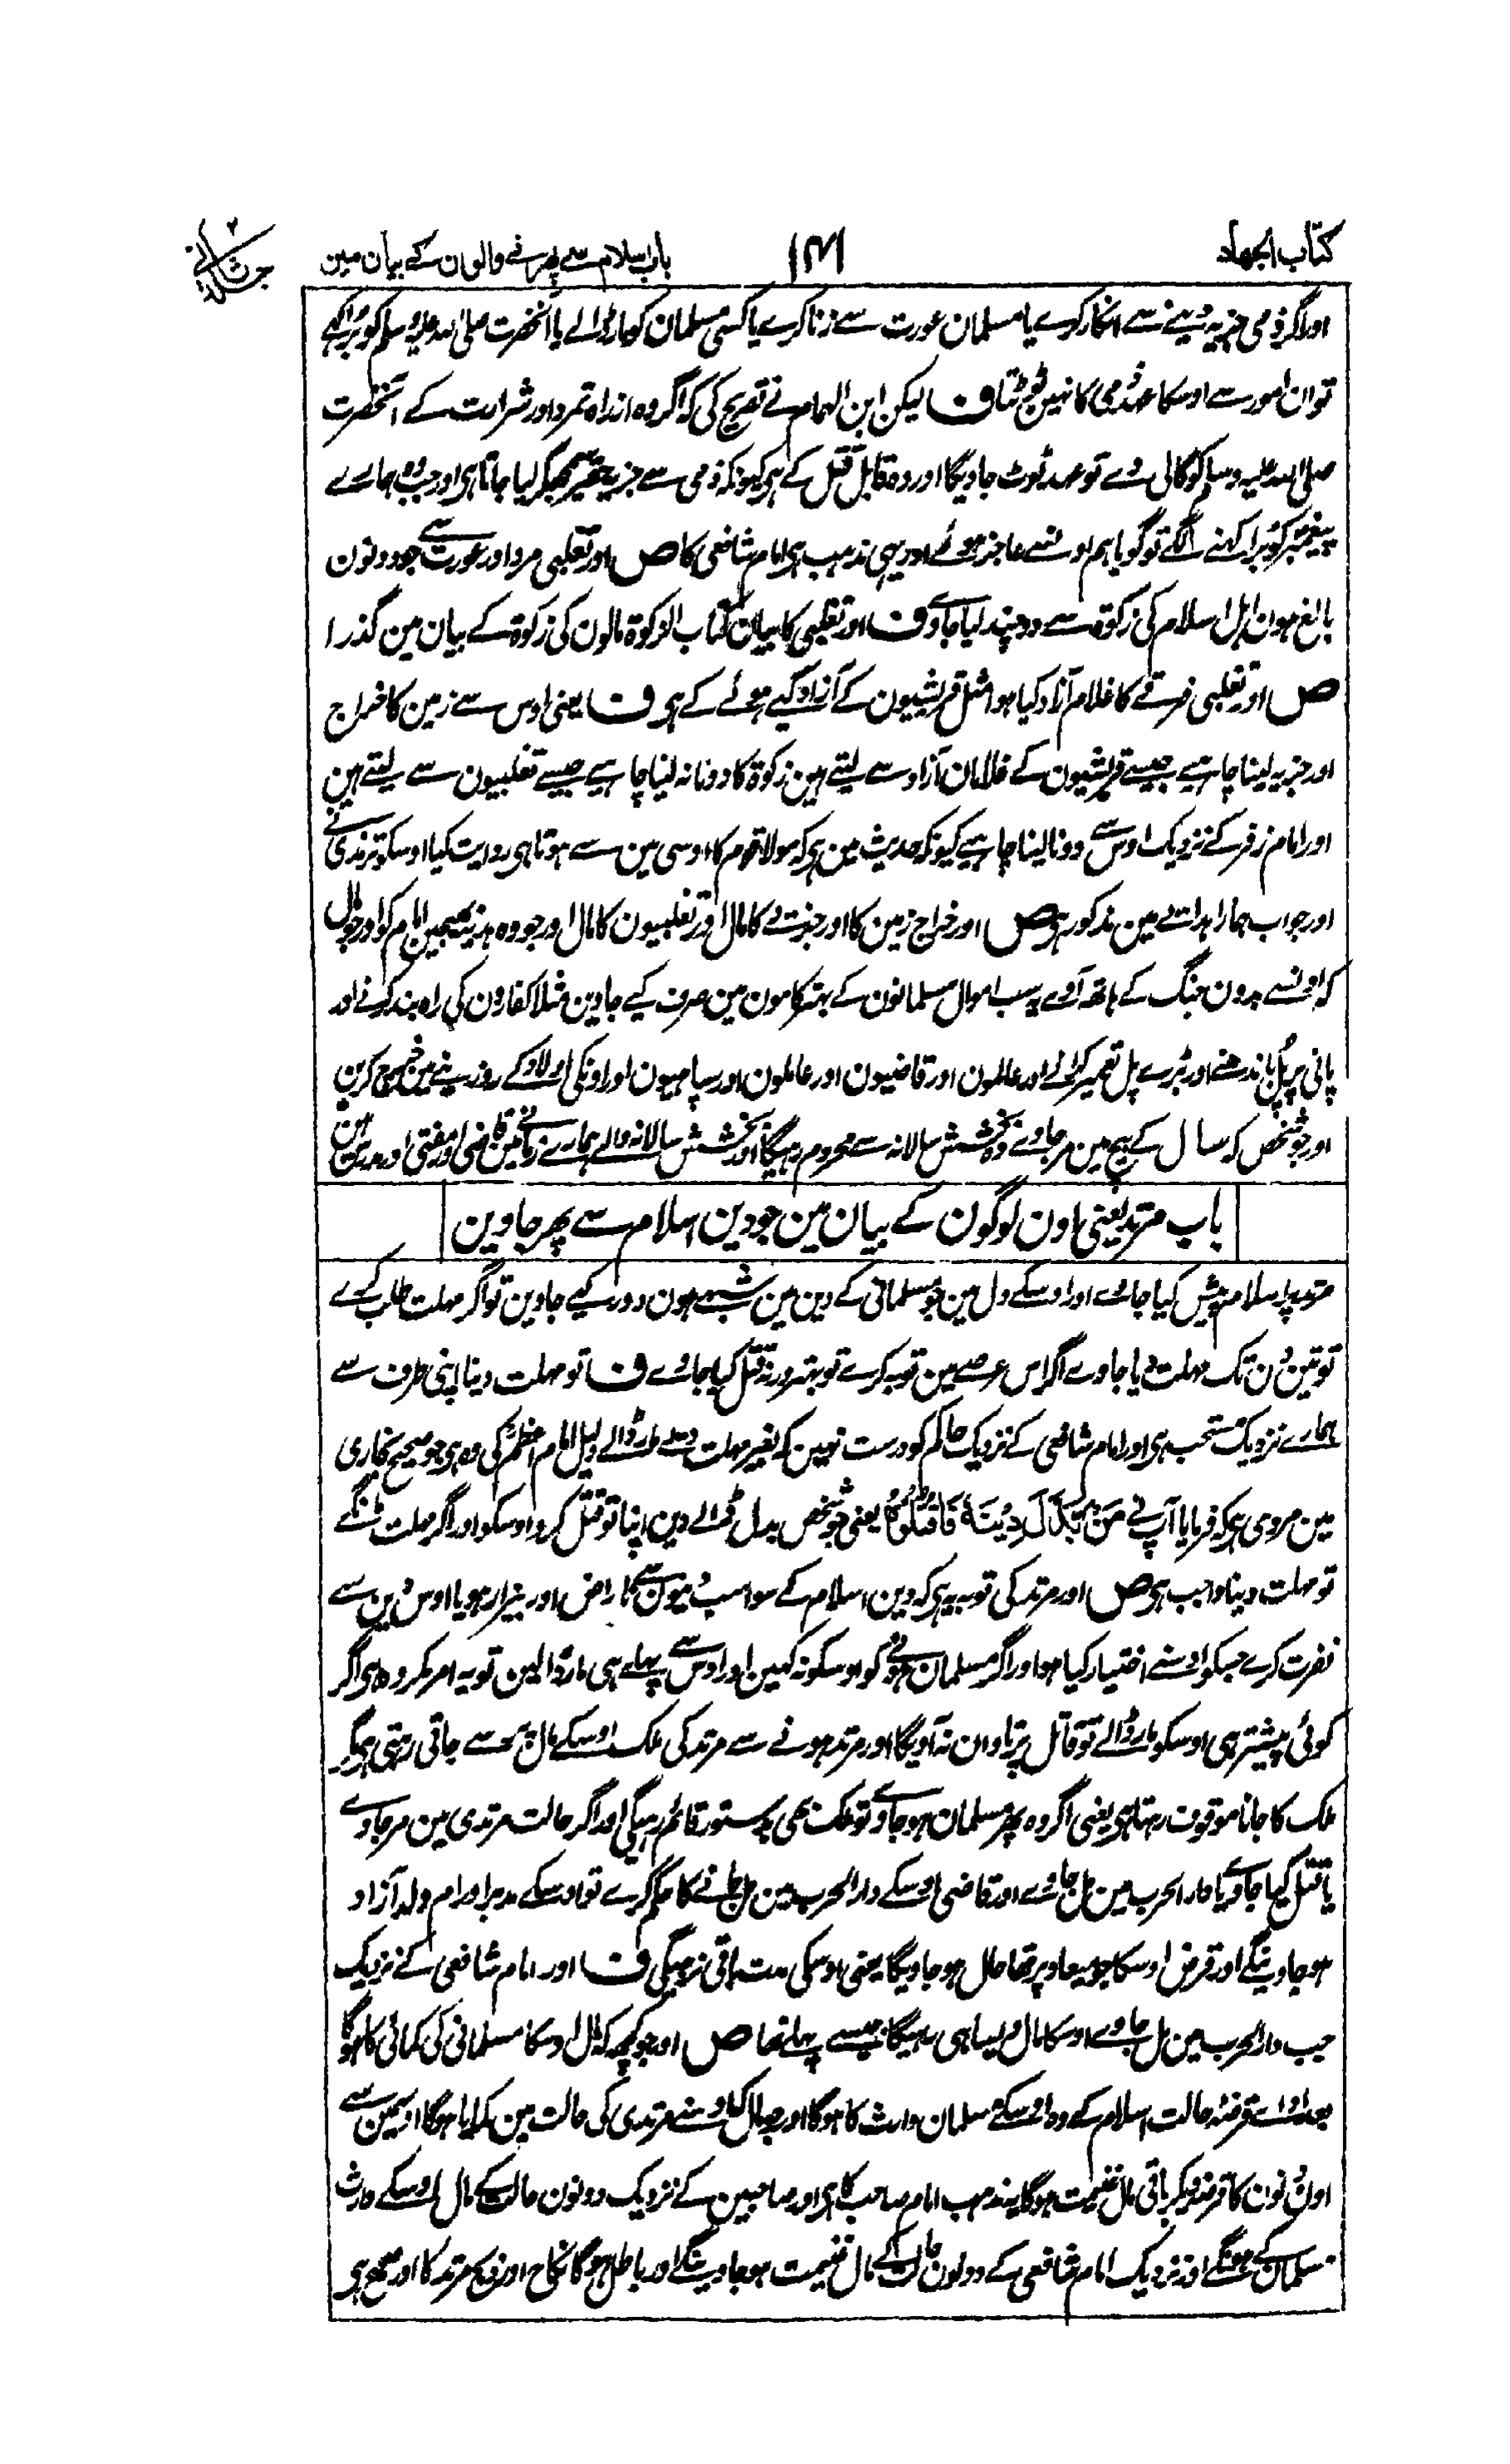 کتاب الجهاد
۱۴۱
باب اسلام سے پھرنے والون کے بیان مین
جلد ثانی
اور اگر ذمی جزیہ دینے سے انکار کرے یا مسلمان عورت سے زنا کرے یا کسی مسلمان کو مار ڈالے یا آنحضرت صلی اللہ علیہ وسلم کو برا کہے
تو ان امور سے اوسکا عہد ذمی کا نہین ٹوٹتا ف لیکن ابن الہمام نے تصریح کی کہ اگر وہ از راہ تمرد اور شرارت کے آنحضرت
صلی اللہ علیہ وسلم کو گالی دے تو عہد ٹوٹ جاویگا اور وہ قابل قتل کے ہی کیونکہ ذمی سے جزیہ حقیر سمجھکر لیا جاتا ہی اور جب وہ ہمارے
پیغمبر کو برا کہنے لگے تو گویا ہم اونسے عاجز ہوئے اور یہی مذہب ہی امام شافعی کا ص اور تغلبی مرد اور عورت سے جو دونون
بالغ ہون اہل اسلام کی زکوٰۃ سے دوچند لیا جاوے ف اور تغلبی کا بیان کتاب الزکوۃ مالون کی زکوۃ کے بیان مین گذرا
ص اور تغلبی فرقے کا غلام آزاد کیا ہوا مثل قریشیون کے آزاد کیے ہوئے کے ہی ف یعنی اوس سے زمین کا خراج
اور جزیہ لینا چاہیے جیسے قریشیون کے غلامان آزاد سے لیتے ہین زکوۃ کا دونا نہ لینا چاہیے جیسے تغلبیون سے لیتے ہین
اور امام زفر کے نزدیک اوس سے دونا لینا چاہیے کیونکہ حدیث مین ہی کہ مولا قوم کا اوسی مین سے ہوتا ہی روایت کیا اوسکو ترمذی نے
اور جواب ہمارا ہدایے مین مذکور ہی ص اور خراج زمین کا اور جزیے کا مال اور تغلبیون کا مال اور جو وہ ہدیہ بھیجین امام کو اور جو مال
کہ اونسے بدون جنگ کے ہاتھ آوے یہ سب اموال مسلمانون کے بہتر کامون مین صرف کیے جاوین مثلا کفارون کی راہ بند کرنے اور
پانی پر پل باندھنے اور بڑے پل تعمیر کرانے اور عالمون اور قاضیون اور عاملون اور سپاہیون اور اونکی اولاد کے روزینے مین خرچ کرین
اور جو شخص کہ سال کے بیچ مین مرجاوے وہ بخشش سالانہ سے محروم رہیگا اور بخشش سالانہ والے ہمارے زمانے مین قاضی اور مفتی اور مدرس ہین
باب مرتد یعنی اون لوگون کے بیان مین جو دین اسلام سے پھر جاوین
مرتد پر اسلام پیش کیا جاوے اور اوسکے دل مین جو مسلمانی کے دین مین شبہے ہون دور کیے جاوین تو اگر مہلت طلب کرے
تو تین دن تک مہلت دیا جاوے اگر اس عرصے مین توبہ کرے تو بہتر ورنہ قتل کیا جاوے ف تو مہلت دینا اپنی طرف سے
ہمارے نزدیک مستحب ہی اور امام شافعی کے نزدیک حاکم کو درست نہین کہ بغیر مہلت دیے مار ڈالے دلیل امام اعظم کی وہ ہی جو صحیح بخاری
مین مروی ہی کہ فرمایا آپ نے مَنْ بَدَّلَ دِیْنَهٗ فَاقْتُلُوْهُ یعنی جو شخص بدل ڈالے دین اپنا تو قتل کرو اوسکو اور اگر مہلت مانگے
تو مہلت دینا واجب ہی ص اور مرتد کی توبہ یہ ہی کہ دین اسلام کے سوا سب دینون سے ناراض اور بیزار ہو یا اوس دین سے
نفرت کرے جسکو اوسنے اختیار کیا ہو اور اگر مسلمان ہونے کو اوسکو نہ کہین اور اوس سے پہلے ہی مار ڈالین تو یہ امر مکروہ ہی اگر
کوئی پیشتر ہی اوسکو مار ڈالے تو قاتل پر تاوان نہ آویگا اور مرتد ہونے سے مرتد کی ملک اوسکے مال پر سے جاتی رہتی ہی مگر
ملک کا جانا موقوف رہتا ہی یعنی اگر وہ پھر مسلمان ہو جاوے تو ملک بھی بدستور قائم رہیگی اور اگر حالت مرتدی مین مرجاوے
یا قتل کیا جاوے یا دار الحرب مین مل جاوے اور قاضی اوسکے دار الحرب مین مل جانے کا حکم کرے تو اوسکے مدبر اور ام ولد آزاد
ہو جاوینگے اور قرض اوسکا جو میعاد پر تھا حال ہو جاویگا یعنی اوسکی مدت باقی نرہیگی ف اور امام شافعی کے نزدیک
جب دار الحرب مین مل جاوے اوسکا مال ویسا ہی رہیگا جیسے پہلے تھا ص اور جو کچھ کہ مال اوسکا مسلمانی کی کمائی کا ہوگا
بعد ادائے قرضہ حالت اسلام کے وہ اوسکے مسلمان وارث کا ہوگا اور جو مال کہ اوسنے مرتدی کی حالت مین کمایا ہوگا اوسمین سے
اون دنون کا قرضہ دیکر باقی مال غنیمت ہوگا یہ مذہب امام صاحب کا ہی اور صاحبین کے نزدیک دونون حالت کے مال اوسکے وارث
مسلمان کے ہونگے اور نزدیک امام شافعی کے دونون حالت کے مال غنیمت ہو جاوینگے اور باطل ہوگا نکاح اور ذبح مرتد کا اور صحیح ہی